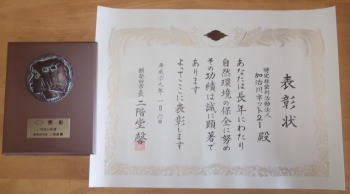 表彰状
特定非営利活動法人
加治川ネット21 殿
あなたは長年にわたり
自然環境の保全に努め
その功績は誠に顕著で
あります
よってここに表彰します
平成二十八年一月六日
新発田市長 二階堂馨